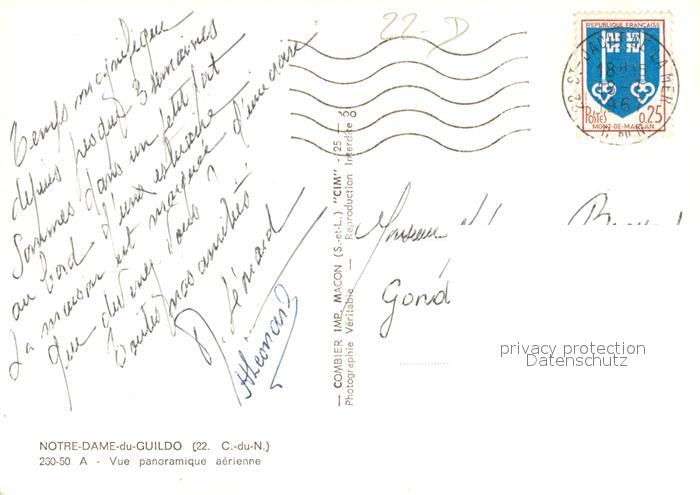 22-D
Temps magnifique
depuis presque 3 semaines
Sommes dans un petit port
au bord d'une estuaire
La maison est marquée d'une croix
que devenez vous ?
Toutes nos amitiés
Léonard
HLéonard
— COMBIER IMP. MACON (S.-et-L.) "CIM" —
Photographie Véritable - Reproduction Interdite
REPUBLIQUE FRANÇAISE
POSTES 0,25
MONT-DE-MARSAN
22 ST-JACUT-DE-LA-MER
Monsieur
Gond
privacy protection
Datenschutz
NOTRE-DAME-du-GUILDO (22. C.-du-N.)
260-50 A - Vue panoramique aérienne